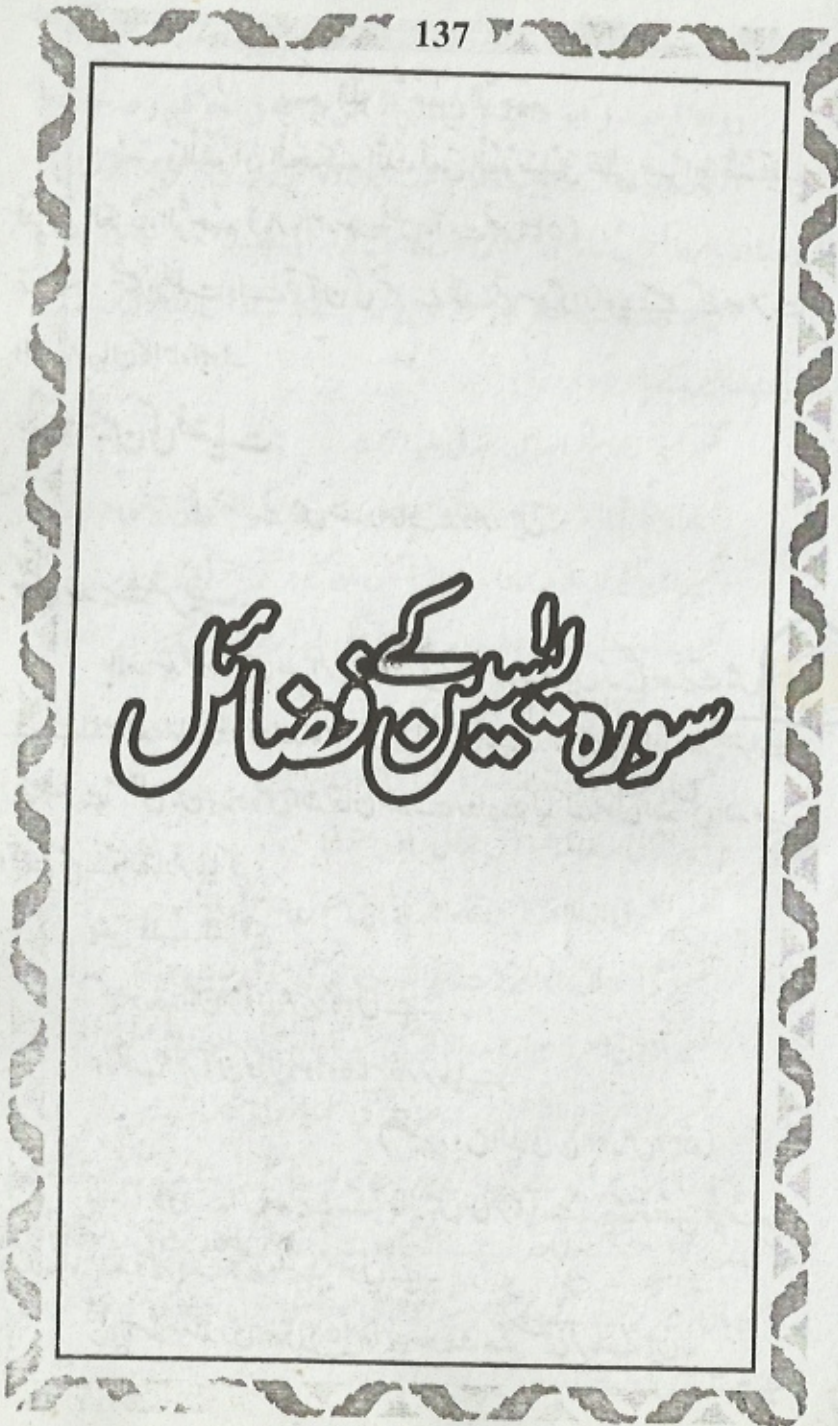 137
سورہ یٰسین کے فضائل